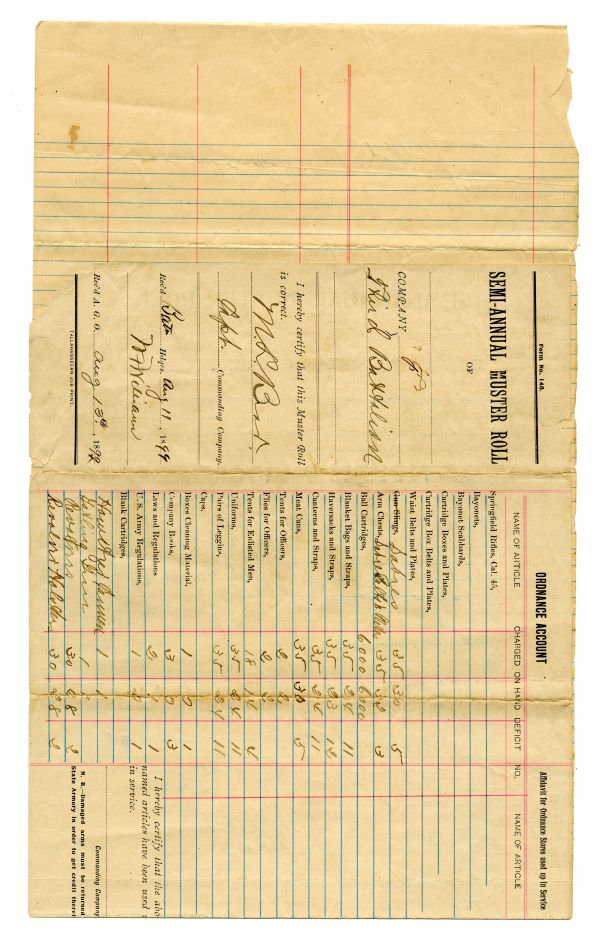 Form No. 148.
SEMI-ANNUAL MUSTER ROLL
OF
COMPANY
Third Battalion
I hereby certify that this Muster Roll
is correct.
Capt. Commanding Company.
Rec'd Hdqrs. Aug 11, 1899
Rec'd A. G. O. Aug 13th, 1899
TALLAHASSEEAN JOB PRINT.
ORDNANCE ACCOUNT
Affidavit for Ordnance Stores used up in Service
NAME OF ARTICLE CHARGED ON HAND DEFICIT NO. NAME OF ARTICLE
Springfield Rifles, Cal. 45,
Bayonets,
Bayonet Scabbards,
Cartridge Boxes and Plates,
Cartridge Box Belts and Plates,
Waist Belts and Plates,
Gun Slings, Sabres 35 30 5
Arm Chests, 35 32 3
Ball Cartridges, 6000 6000
Blanket Bags and Straps, 35 24 11
Haversacks and Straps, 35 23 12
Canteens and Straps, 35 24 11
Meat Cans, 35 30 5
Tents for Officers, 2 2
Flies for Officers, 2 2
Tents for Enlisted Men, 18 14 4
Uniforms, 35 24 11
Pairs of Leggins, 35 24 11
Caps,
Boxes Cleaning Material, 1 0 1
Company Books, 3 0 3
Laws and Regulations 2 1 1
U. S. Army Regulations, 1 0 1
Blank Cartridges,
1 1
Gatling Gun 1 1
Revolvers 30 28 2
Revolvers Holsters 30 28 2
I hereby certify that the abo
named articles have been used
in service.
Commanding Company
N. B.—Damaged arms must be returned
State Armory in order to get credit theref